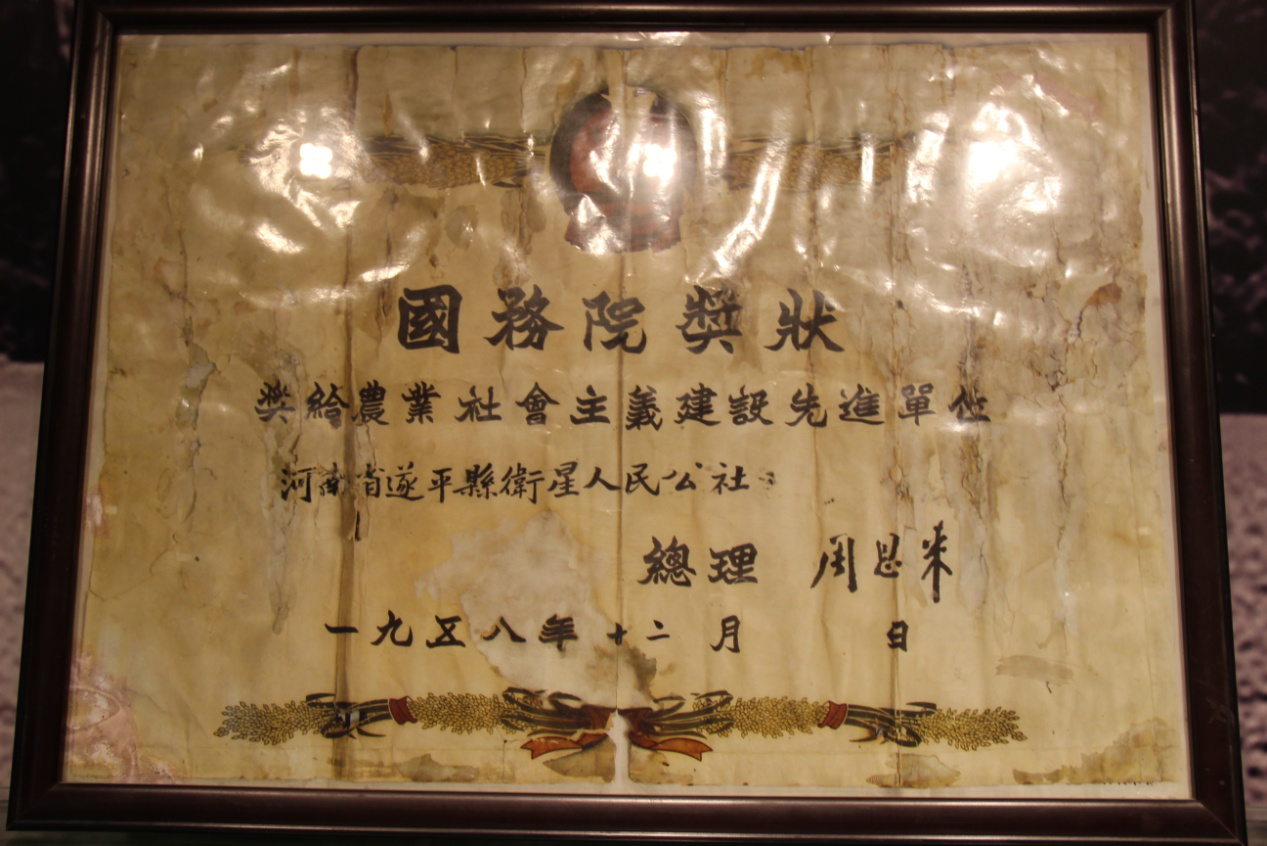 國務院獎狀
獎給農業社會主義建設先進單位
河南省遂平縣衛星人民公社：
總理 周恩来
一九五八年十二月 日